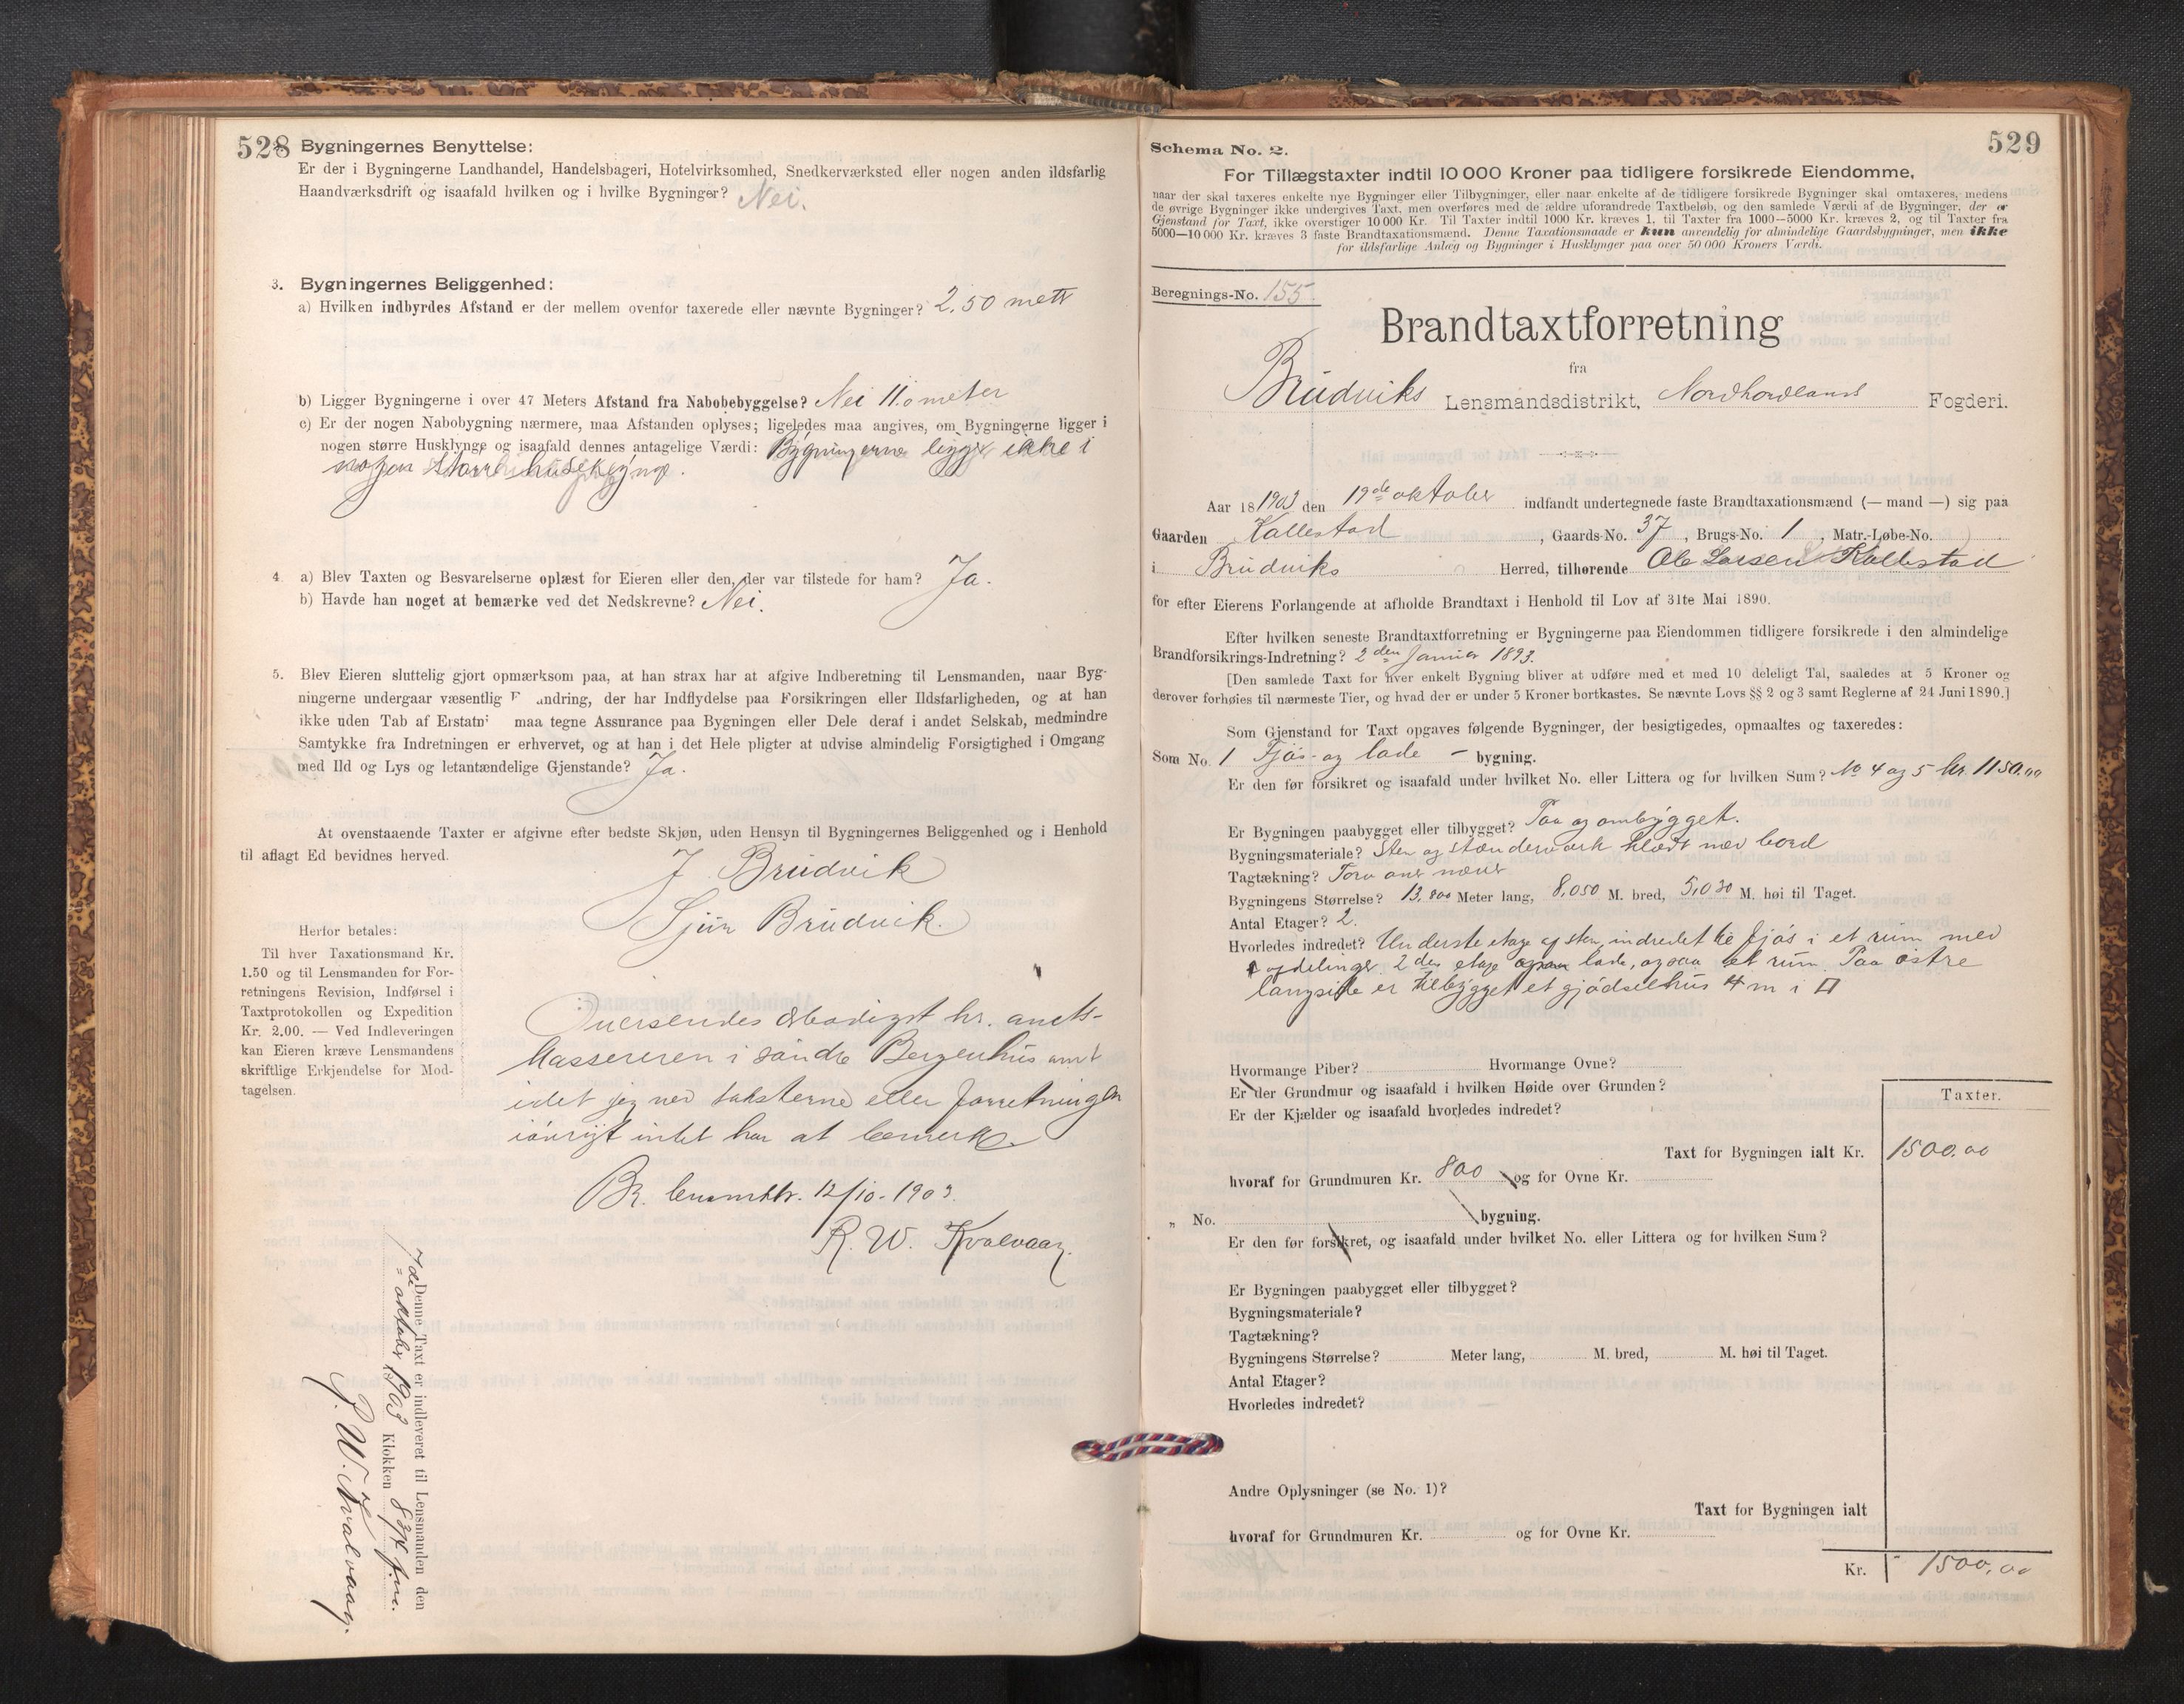 528 Bygningernes Benyttelse:
Er der i Bygningerne Landhandel, Handelsbageri, Hotelvirksomhed, Snedkerværksted eller nogen anden ildsfarlig
Haandværksdrift og isaafald hvilken og i hvilke Bygninger? Nei.
3. Bygningernes Beliggenhed:
a) Hvilken indbyrdes Afstand er der mellem ovenfor taxerede eller nævnte Bygninger? 2,50 metr
b) Ligger Bygningerne i over 47 Meters Afstand fra Nabobebyggelse? Nei 11.0 meter
c) Er der nogen Nabobygning nærmere, maa Afstanden oplyses; ligeledes maa angives, om Bygningerne ligger i
nogen større Husklynge og isaafald dennes antagelige Værdi: Bygningerne ligger ikke i
nogen større husklynge.
4. a) Blev Taxten og Besvarelserne oplæst for Eieren eller den, der var tilstede for ham? Ja.
b) Havde han noget at bemærke ved det Nedskrevne? Nei.
5. Blev Eieren sluttelig gjort opmærksom paa, at han strax har at afgive Indberetning til Lensmanden, naar Byg-
ningerne undergaar væsentlig F andring, der har Indflydelse paa Forsikringen eller Ildsfarligheden, og at han
ikke uden Tab af Erstatn maa tegne Assurance paa Bygningen eller Dele deraf i andet Selskab, medmindre
Samtykke fra Indretningen er erhvervet, og at han i det Hele pligter at udvise almindelig Forsigtighed i Omgang
med Ild og Lys og letantændelige Gjenstande? Ja.
At ovenstaaende Taxter er afgivne efter bedste Skjøn, uden Hensyn til Bygningernes Beliggenhed og i Henhold
til aflagt Ed bevidnes herved.
J Brudvik
Sjur Brudvik.
Herfor betales:
Til hver Taxationsmand Kr.
1.50 og til Lensmanden for For-
retningens Revision, Indførsel i
Taxtprotokollen og Expedition
Kr. 2.00. — Ved Indleveringen
kan Eieren kræve Lensmandens
skriftlige Erkjendelse for Mod-
tagelsen.
Oversendes ærbødigst hr. amts-
kassereren i søndre Bergenhus amt
idet jeg ved taksterne eller forretningen
iøvrigt intet har at bemerke.
Br. lensmktr. 12/10-1903.
R. W. Kvalvaag.
Denne Taxt er indleveret til Lensmanden den
7de oktober 1903 Klokken 8 fm.
R. W. Kvalvaag.
529
Schema No. 2.
For Tillægstaxter indtil 10 000 Kroner paa tidligere forsikrede Eiendomme,
naar der skal taxeres enkelte nye Bygninger eller Tilbygninger, eller naar enkelte af de tidligere forsikrede Bygninger skal omtaxeres, medens
de øvrige Bygninger ikke undergives Taxt, men overføres med de ældre uforandrede Taxtbeløb, og den samlede Værdi af de Bygninger, der er
Gjenstand for Taxt, ikke overstiger 10 000 Kr. Til Taxter indtil 1000 Kr. kræves 1, til Taxter fra 1000—5000 Kr. kræves 2, og til Taxter fra
5000—10 000 Kr. kræves 3 faste Brandtaxationsmænd. Denne Taxationsmaade er kun anvendelig for almindelige Gaardsbygninger, men ikke
for ildsfarlige Anlæg og Bygninger i Husklynger paa over 50 000 Kroners Værdi.
Beregnings-No. 155.
Brandtaxtforretning
fra
Brudviks Lensmandsdistrikt, Nordhordlands Fogderi.
Aar 18 1903 den 19de oktober indfandt undertegnede faste Brandtaxationsmænd (— mand —) sig paa
Gaarden Kallestad, Gaards-No. 37, Brugs-No. 1, Matr.-Løbe-No.
i Brudviks Herred, tilhørende Ole Larsen Kallestad
for efter Eierens Forlangende at afholde Brandtaxt i Henhold til Lov af 31te Mai 1890.
Efter hvilken seneste Brandtaxtforretning er Bygningerne paa Eiendommen tidligere forsikrede i den almindelige
Brandforsikrings-Indretning? 2den Januar 1893.
[Den samlede Taxt for hver enkelt Bygning bliver at udføre med et med 10 deleligt Tal, saaledes at 5 Kroner og
derover forhøies til nærmeste Tier, og hvad der er under 5 Kroner bortkastes. Se nævnte Lovs §§ 2 og 3 samt Reglerne af 24 Juni 1890.]
Som Gjenstand for Taxt opgaves følgende Bygninger, der besigtigedes, opmaaltes og taxeredes:
Som No. 1 Fjøs- og lade - bygning.
Er den før forsikret og isaafald under hvilket No. eller Littera og for hvilken Sum? No 4 og 5 kr. 1150.00
Er Bygningen paabygget eller tilbygget? Paa og ombygget.
Bygningsmateriale? Sten og stenderverk klædt med bord
Tagtækning? Torv over næver
Bygningens Størrelse? 13,800 Meter lang, 8,050 M. bred, 5,030 M. høi til Taget.
Antal Etager? 2.
Hvorledes indredet? Underste etage af sten, indredet til fjøs i et rum med
afdelinger. 2den etage lade, ogsaa et rum. Paa østre
langside er tilbygget et gjødselhus 4 m i □
Hvormange Piber? Hvormange Ovne?
Er der Grundmur og isaafald i hvilken Høide over Grunden?
Er der Kjælder og isaafald hvorledes indredet?
Taxter.
Taxt for Bygningen ialt Kr. 1500.00
hvoraf for Grundmuren Kr. 800 og for Ovne Kr.
„ No. bygning.
Er den før forsikret, og isaafald under hvilket No. eller Littera og for hvilken Sum?
Er Bygningen paabygget eller tilbygget?
Bygningsmateriale?
Tagtækning?
Bygningens Størrelse? Meter lang, M. bred, M. høi til Taget.
Antal Etager?
Hvorledes indredet?
Andre Oplysninger (se No. 1)?
Taxt for Bygningen ialt
hvoraf for Grundmuren Kr. og for Ovne Kr.
Kr. 1500,00